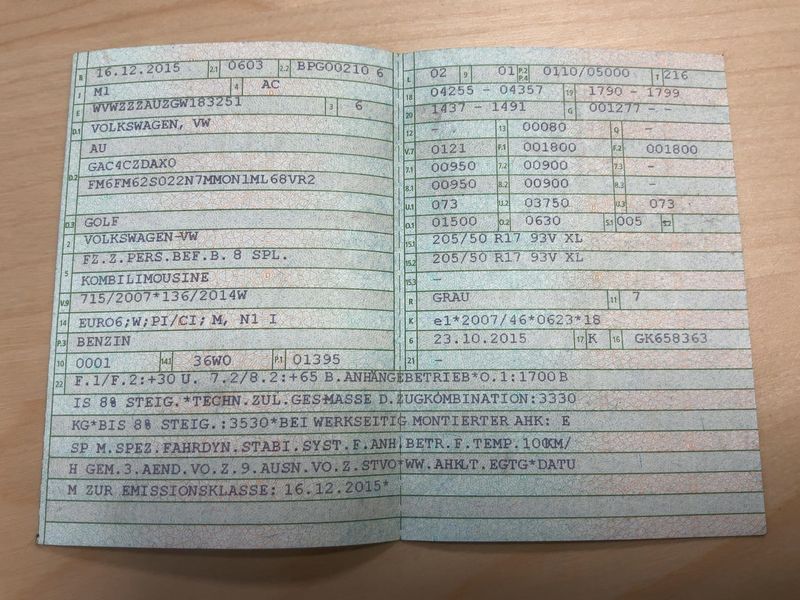 B 16.12.2015 2.1 0603 2.2 BPG00210 6
J M1 4 AC
E WVWZZZAUZGW183251 3 6
D.1 VOLKSWAGEN, VW
D.2 AU
GAC4CZDAX0
FM6FM62S022N7MMON1ML68VR2
D.3 GOLF
2 VOLKSWAGEN-VW
5 FZ.Z.PERS.BEF.B. 8 SPL.
KOMBILIMOUSINE
V.9 715/2007*136/2014W
14 EURO6;W;PI/CI; M, N1 I
P.3 BENZIN
10 0001 14.1 36W0 P.1 01395
L 02 9 01 P.2 P.4 0110/05000 T 216
18 04255 - 04357 19 1790 - 1799
20 1437 - 1491 G 001277 - -
12 - 13 00080 Q -
V.7 0121 F.1 001800 F.2 001800
7.1 00950 7.2 00900 7.3 -
8.1 00950 8.2 00900 8.3 -
U.1 073 U.2 03750 U.3 073
O.1 01500 O.2 0630 S.1 005 S.2
15.1 205/50 R17 93V XL
15.2 205/50 R17 93V XL
15.3 -
R GRAU 11 7
K e1*2007/46*0623*18
6 23.10.2015 17 K 16 GK658363
21 -
22 F.1/F.2:+30 U. 7.2/8.2:+65 B.ANHÄNGEBETRIEB*O.1:1700 B
IS 8% STEIG.*TECHN.ZUL.GES-MASSE D.ZUGKOMBINATION:3330
KG*BIS 8% STEIG.:3530*BEI WERKSEITIG MONTIERTER AHK: E
SP M.SPEZ.FAHRDYN.STABI.SYST.F.ANH.BETR.F.TEMP.100KM/
H GEM.3.AEND.VO.Z.9.AUSN.VO.Z.STVO*WW.AHK LT.EGTG*DATU
M ZUR EMISSIONSKLASSE: 16.12.2015*